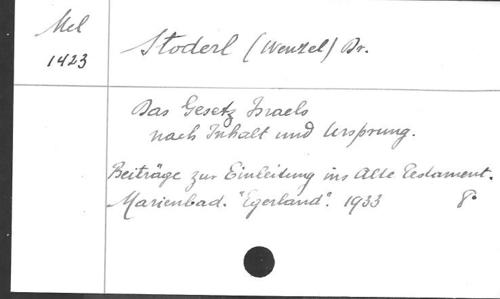 Mel
1423
Stoderl (Wenzel) Dr.
Das Gesetz Israels
nach Inhalt und Ursprung.
Beiträge zur Einleitung ins Alte Testament.
Marienbad. "Egerland". 1933 8°